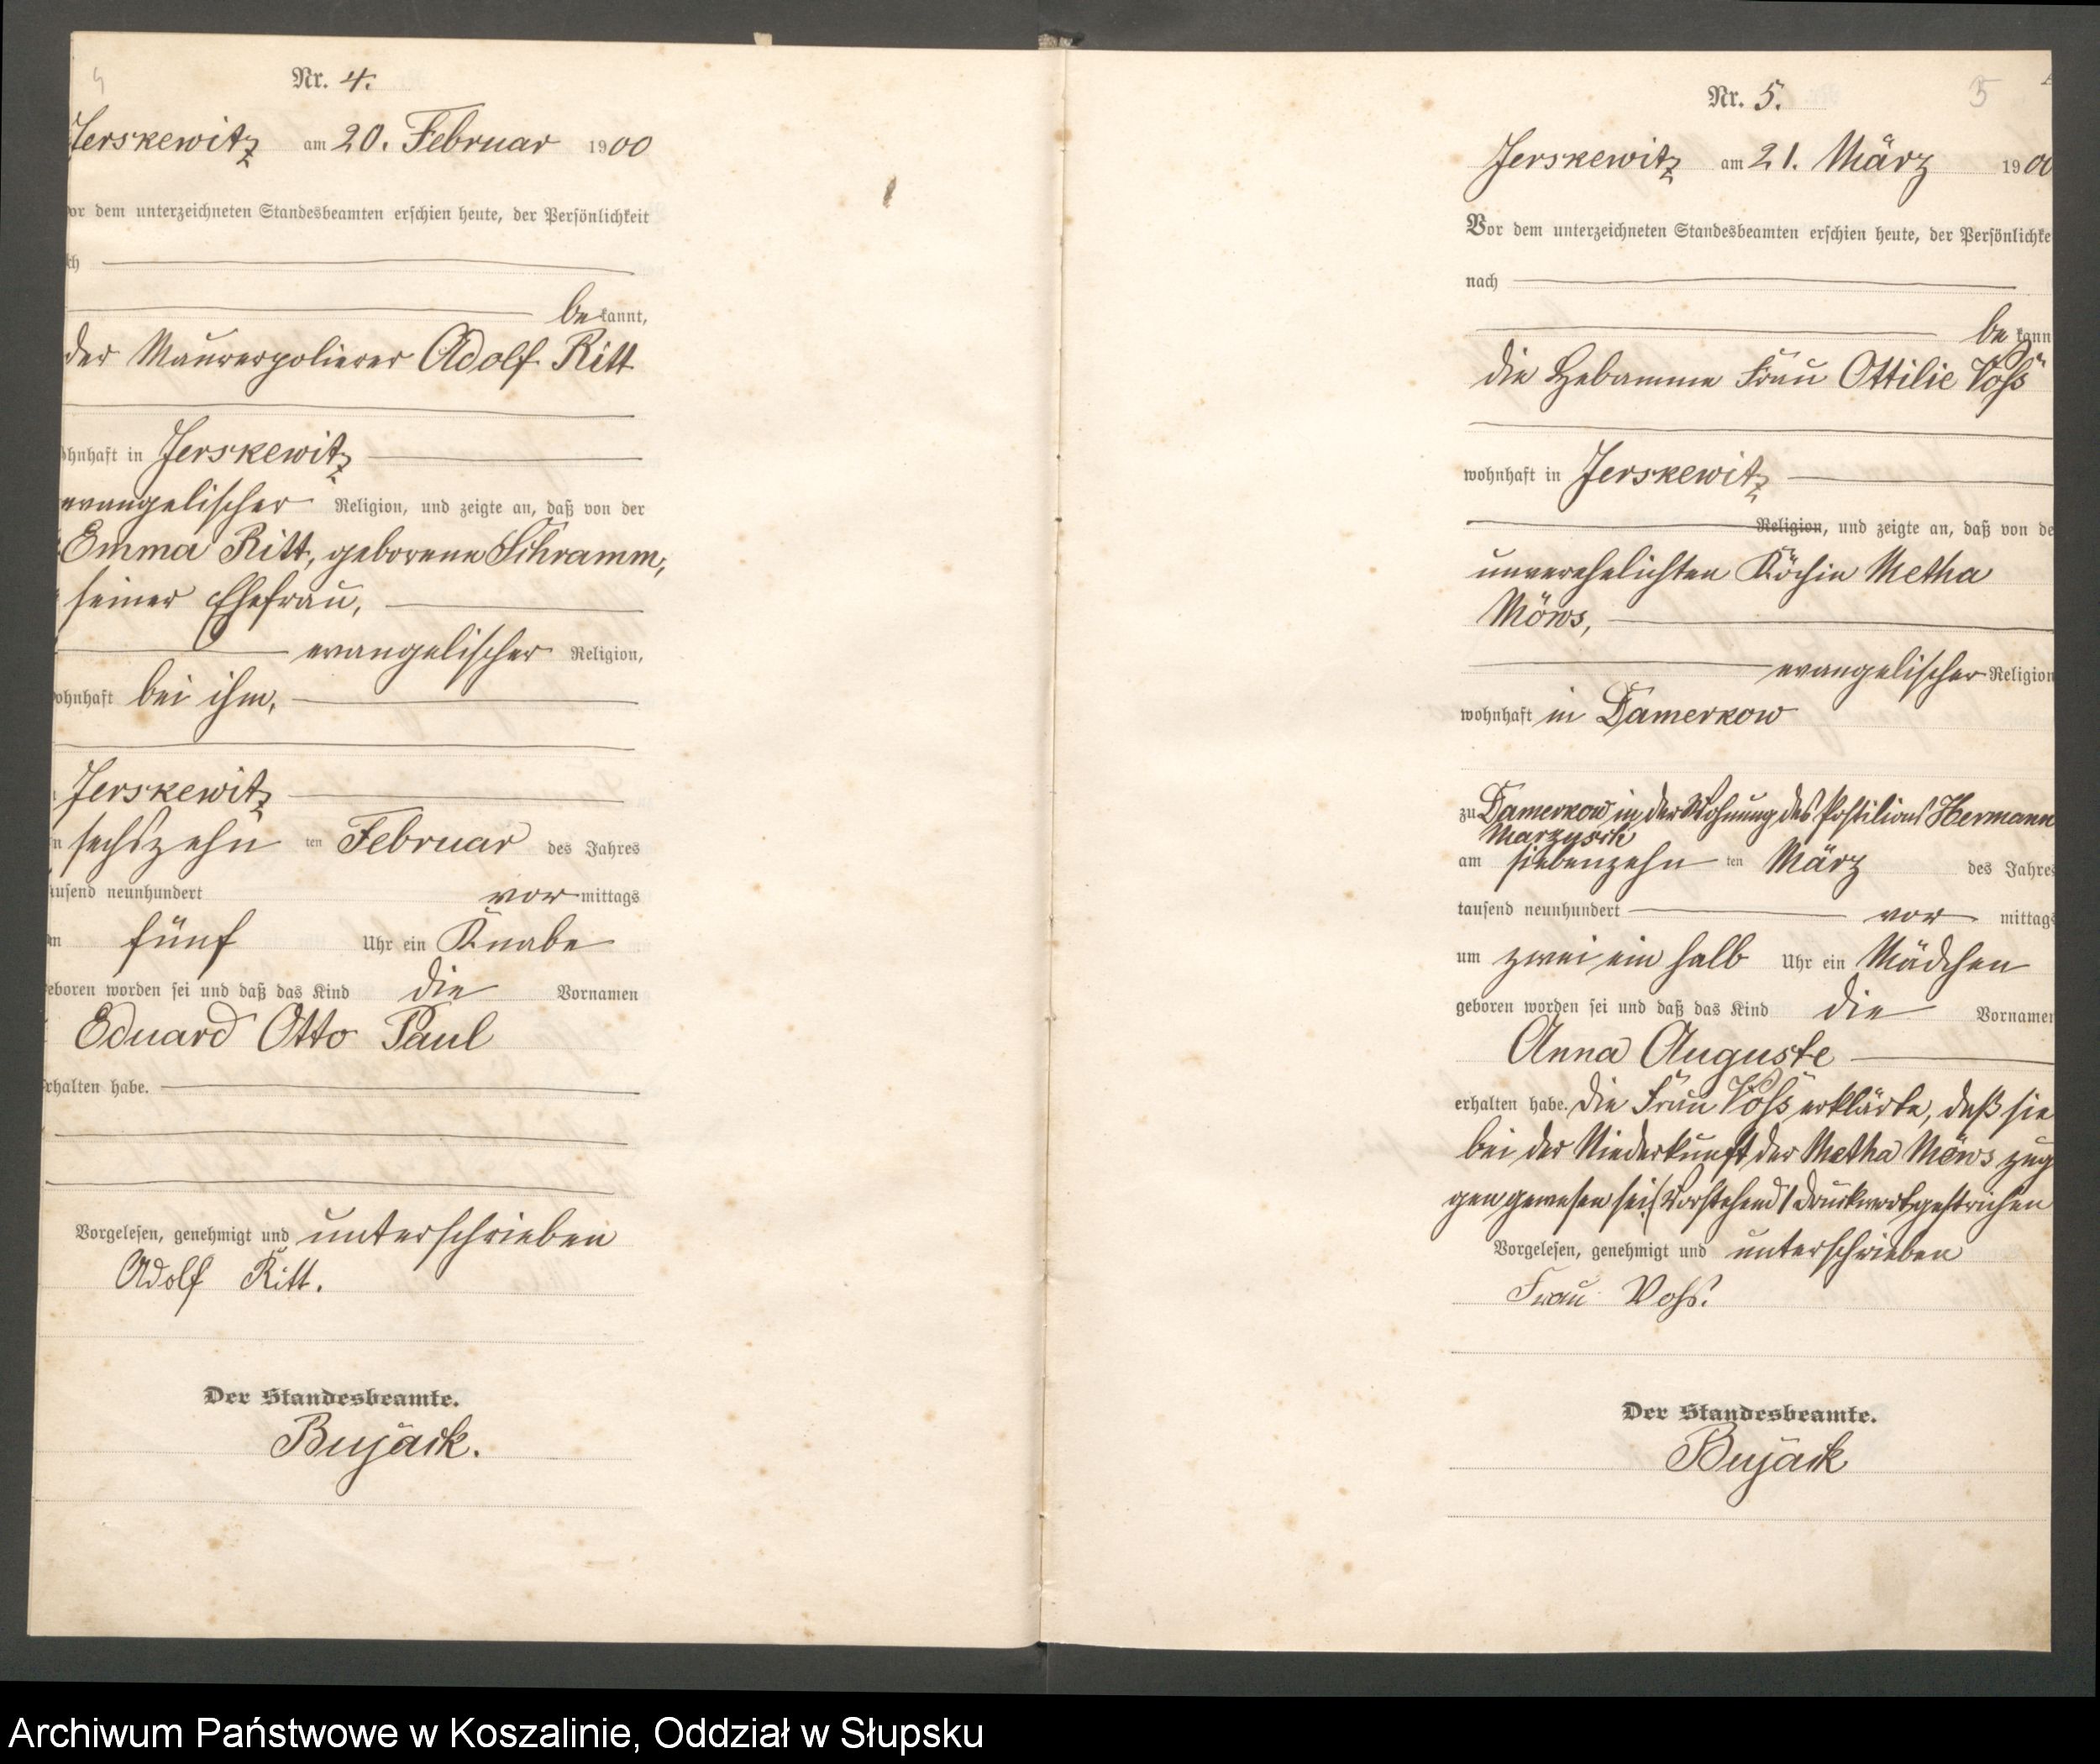 4
Nr. 4.
Jerskewitz am 20. Februar 1900
or dem unterzeichneten Standesbeamten erschien heute, der Persönlichkeit
ch
be kannt,
der Maurerpolierer Adolf Ritt
ohnhaft in Jerskewitz
evangelischer Religion, und zeigte an, daß von der
Emma Ritt, geborene Schramm,
seiner Ehefrau,
evangelischer Religion,
ohnhaft bei ihm,
Jerskewitz
n sechszehn ten Februar des Jahres
ausend neunhundert vor mittags
m fünf Uhr ein Knabe
eboren worden sei und daß das Kind die Vornamen
Eduard Otto Paul
erhalten habe.
Vorgelesen, genehmigt und unterschrieben
Adolf Ritt.
Der Standesbeamte.
Bujack.
5
Nr. 5.
Jerskewitz am 21. März 1900
Vor dem unterzeichneten Standesbeamten erschien heute, der Persönlichke
nach
be kann
die Hebamme Frau Ottilie Voß
wohnhaft in Jerskewitz
Religion, und zeigte an, daß von de
unverehelichten Köchin Metha
Möws,
evangelischer Religion
wohnhaft in Damerkow
zu Damerkow in der Wohnung des Postilions Hermann
am siebenzehn ten März des Jahres
tausend neunhundert vor mittags
um zwei ein halb Uhr ein Mädchen
geboren worden sei und daß das Kind die Vornamen
Anna Auguste
erhalten habe. Die Frau Voß erklärte, daß sie
bei der Niederkunft der Metha Möws zug
gen gewesen sei. (Vorstehend 1 Druckwort gestrichen
Vorgelesen, genehmigt und unterschrieben
Frau Voß.
Der Standesbeamte.
Bujack
Archiwum Państwowe w Koszalinie, Oddział w Słupsku